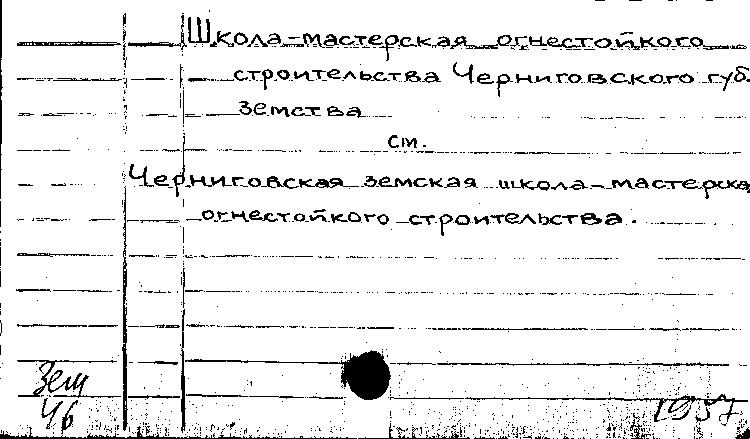 Школа-мастерская огнестойкого
строительства Черниговского губ.
земства
см.
Черниговская земская школа-мастерска
огнестойкого строительства.
Зем
46
1957